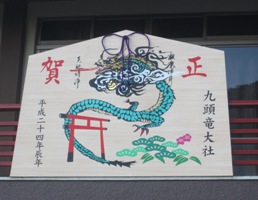 賀正
九頭竜大社
平成二十四年辰年